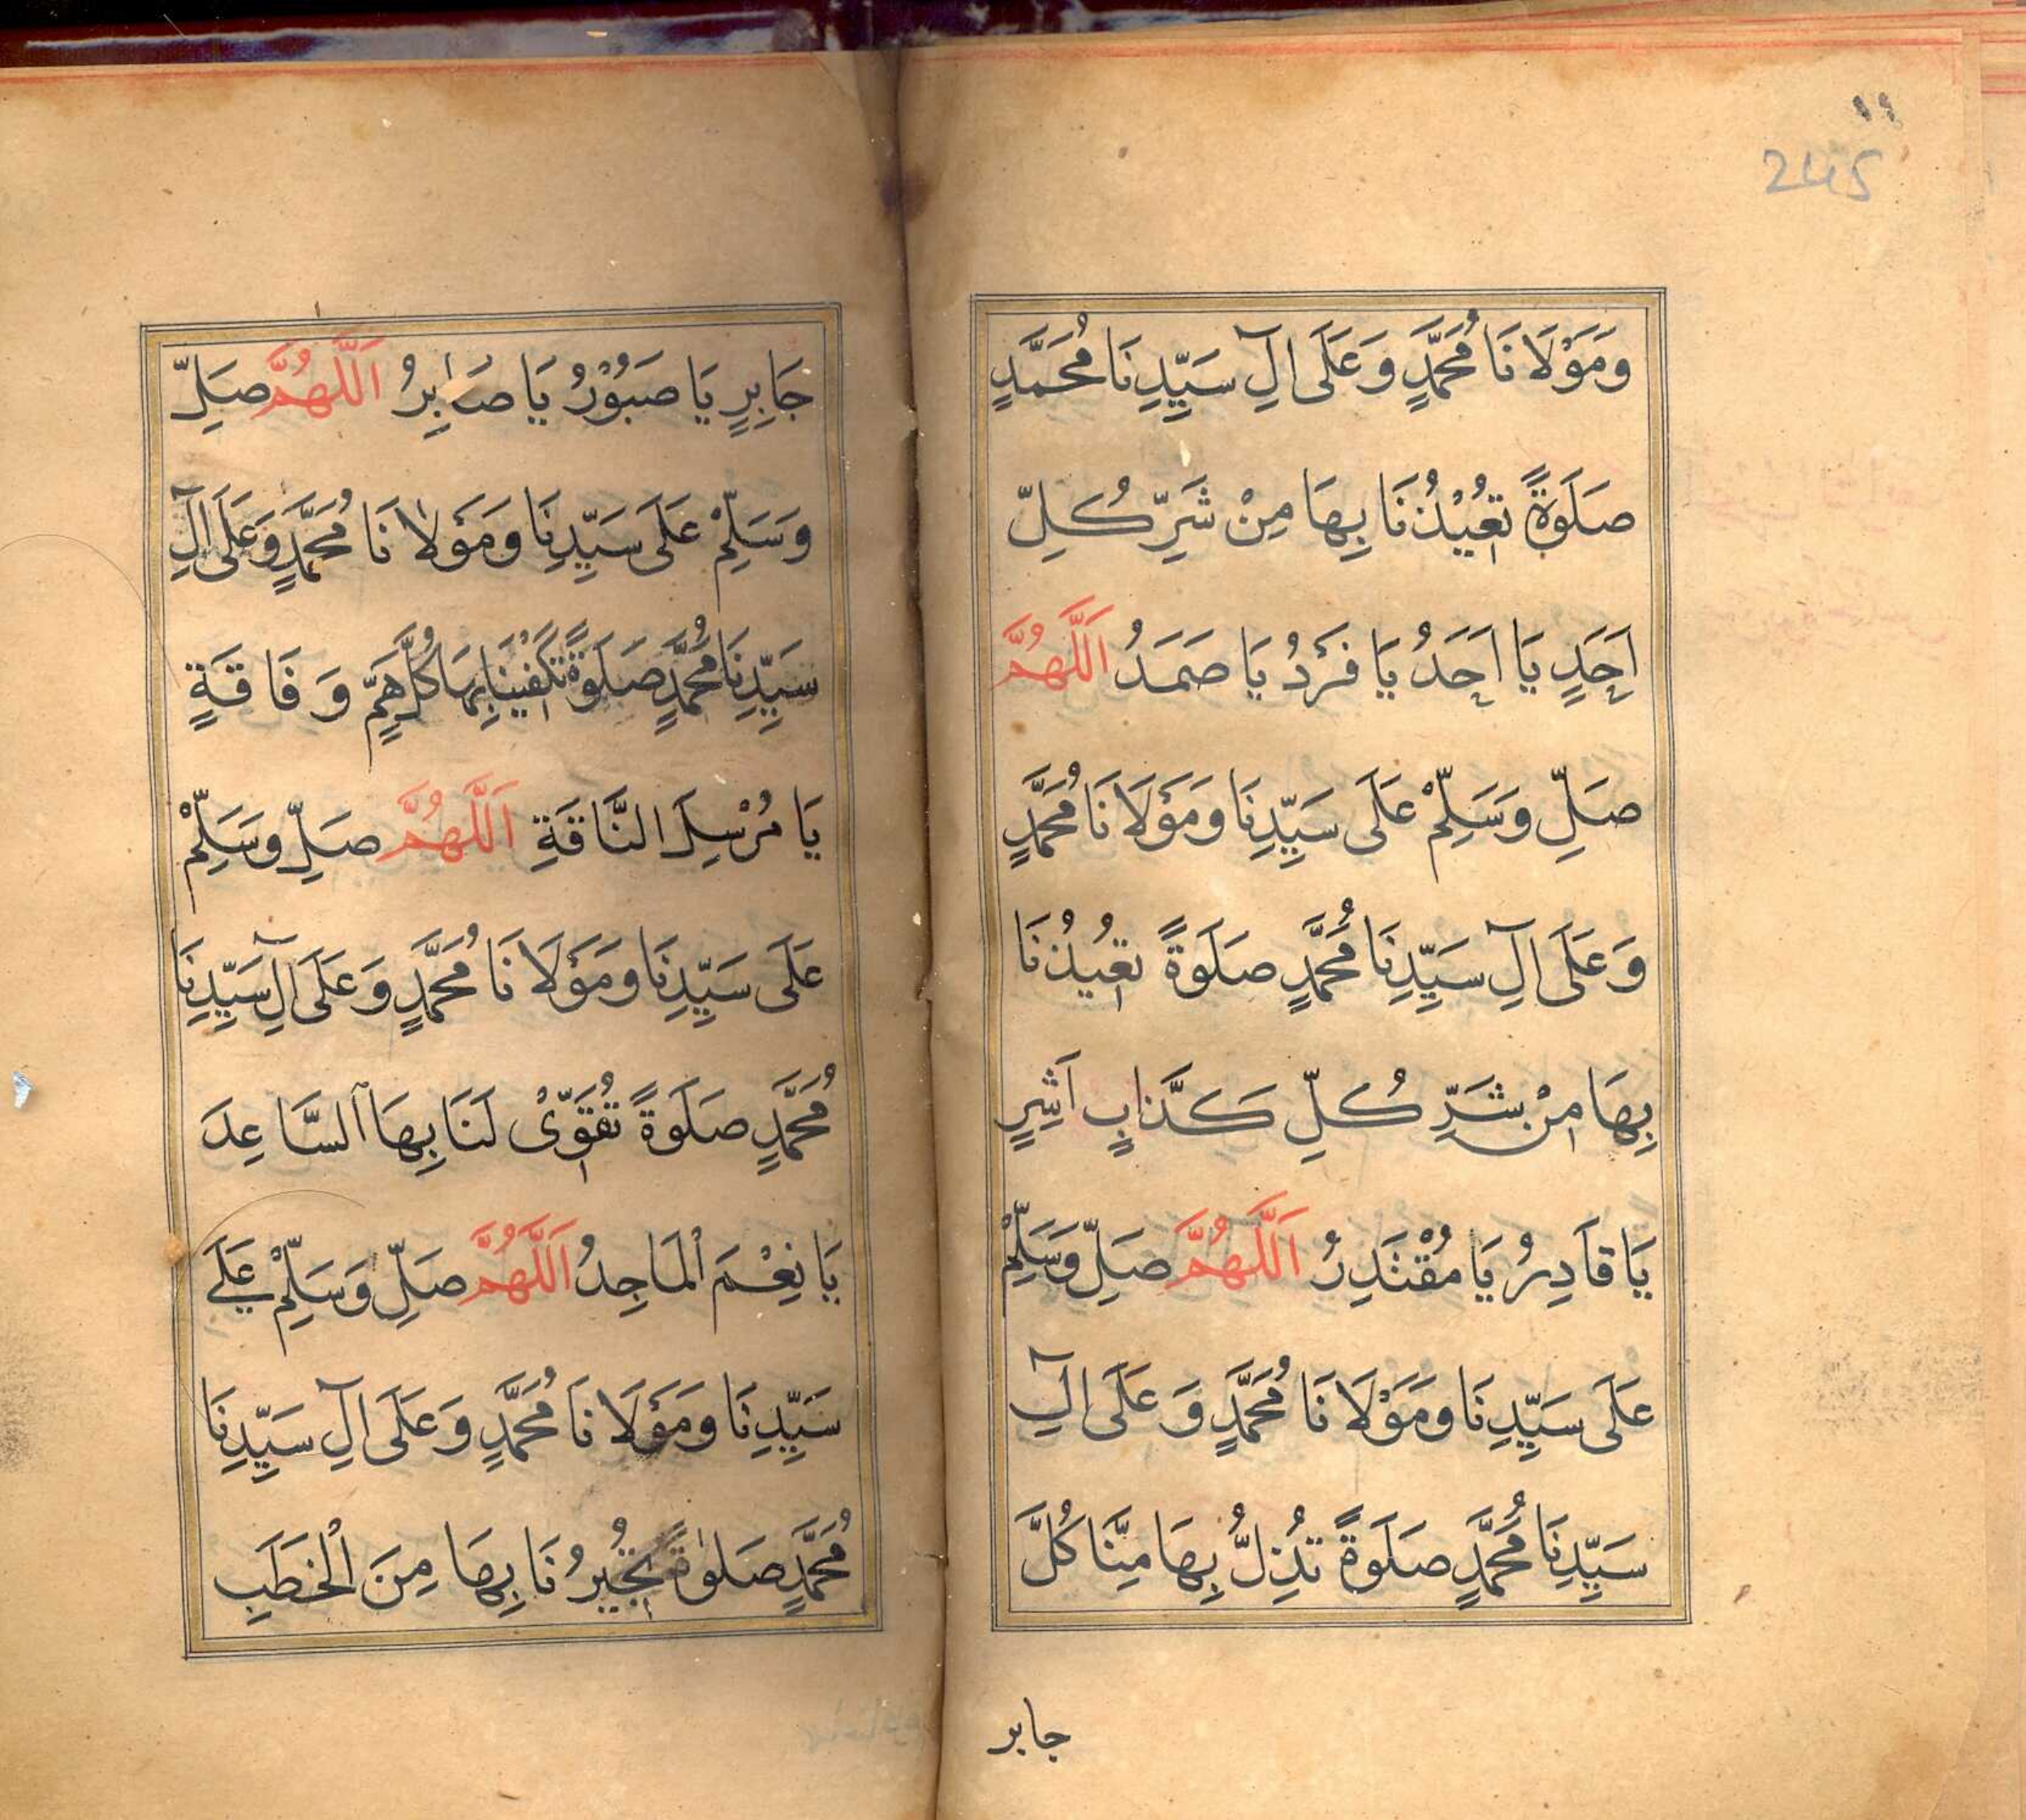 ١١
245
وَمَوْلَانَا مُحَمَّدٍ وَعَلَى اٰلِ سَيِّدِنَا مُحَمَّدٍ
صَلَوةً تُعِيْذُنَا بِهَا مِنْ شَرِّ كُلِّ
اَحَدٍ يَا اَحَدُ يَا فَرْدُ يَا صَمَدُ اَللّٰهُمَّ
صَلِّ وَسَلِّمْ عَلَى سَيِّدِنَا وَمَوْلَانَا مُحَمَّدٍ
وَعَلَى اٰلِ سَيِّدِنَا مُحَمَّدٍ صَلَوةً تُعِيْذُنَا
بِهَا مِنْ شَرِّ كُلِّ كَذَّابٍ اَشِرٍ
يَا قَادِرُ يَا مُقْتَدِرُ اَللّٰهُمَّ صَلِّ وَسَلِّمْ
عَلَى سَيِّدِنَا وَمَوْلَانَا مُحَمَّدٍ وَعَلَى اٰلِ
سَيِّدِنَا مُحَمَّدٍ صَلَوةً تُذِلُّ بِهَا مِنَّا كُلَّ
جابر
جَابِرٍ يَا صَبُوْرُ يَا صَابِرُ اَللّٰهُمَّ صَلِّ
وَسَلِّمْ عَلَى سَيِّدِنَا وَمَوْلَانَا مُحَمَّدٍ وَعَلَى اٰلِ
سَيِّدِنَا مُحَمَّدٍ صَلَوةً تَكْفِيْنَا بِهَا كُلَّ هَمٍّ وَفَاقَةٍ
يَا مُرْسِلَ النَّاقَةِ اَللّٰهُمَّ صَلِّ وَسَلِّمْ
عَلَى سَيِّدِنَا وَمَوْلَانَا مُحَمَّدٍ وَعَلَى اٰلِ سَيِّدِنَا
مُحَمَّدٍ صَلَوةً تُقَوِّىْ لَنَا بِهَا السَّاعِدَ
يَا نِعْمَ الْمَاجِدُ اَللّٰهُمَّ صَلِّ وَسَلِّمْ عَلَى
سَيِّدِنَا وَمَوْلَانَا مُحَمَّدٍ وَعَلَى اٰلِ سَيِّدِنَا
مُحَمَّدٍ صَلٰوةً تُجِيْرُنَا بِهَا مِنَ الْخَطَبِ